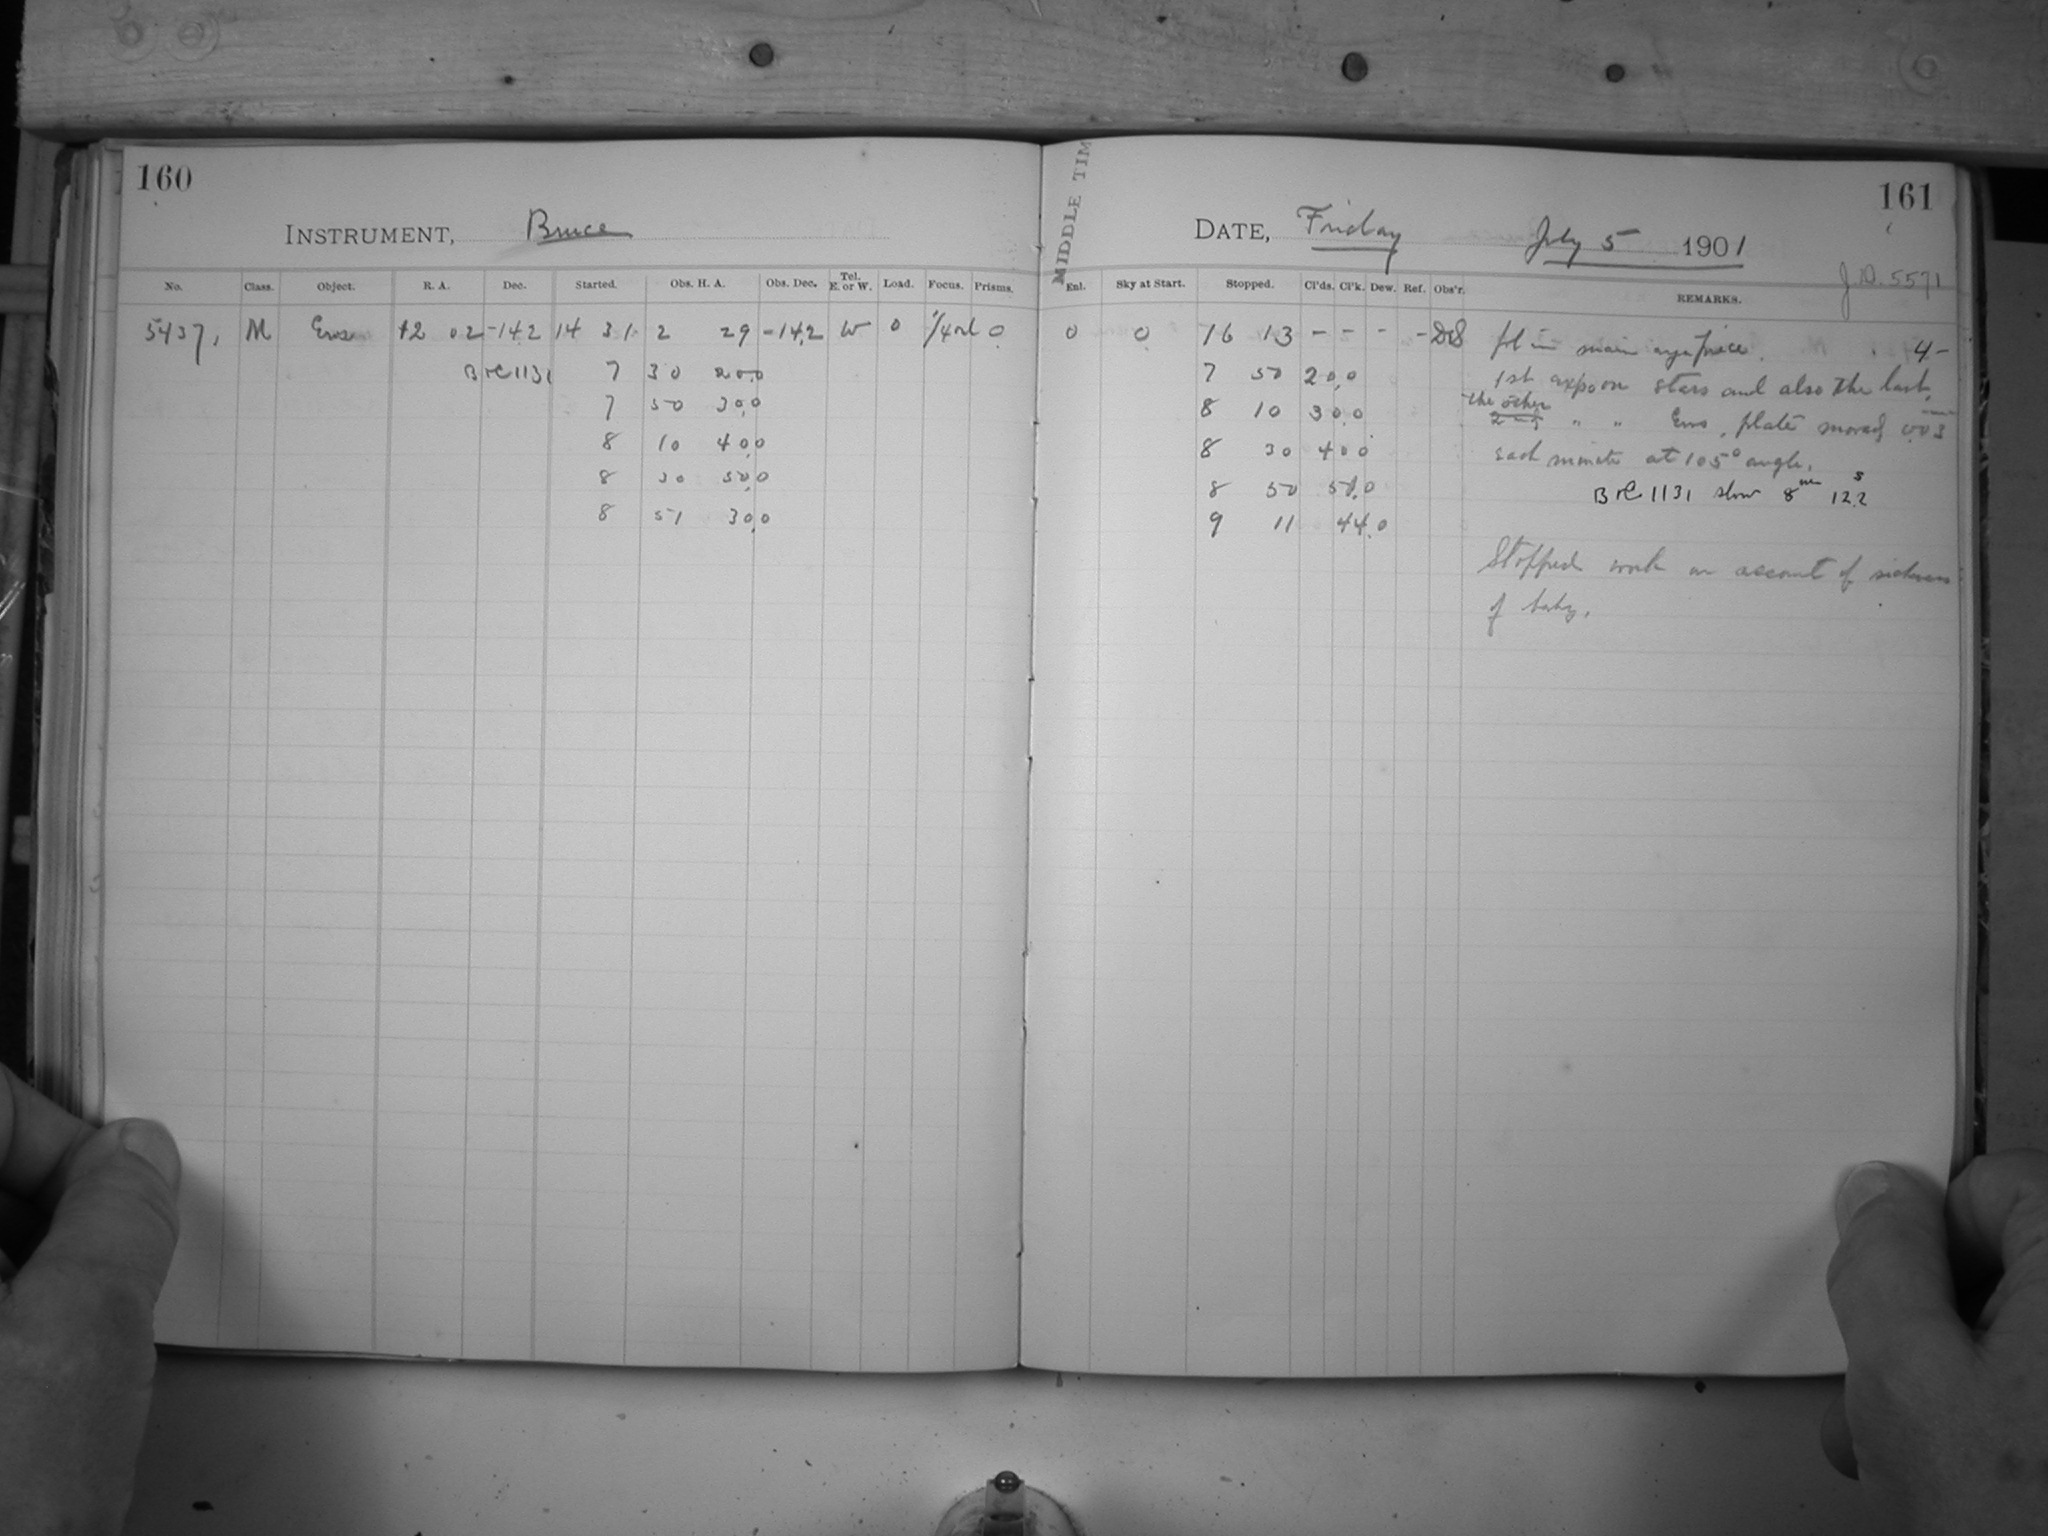 160
INSTRUMENT, Bruce
No. Class. Object. R. A. Dec. Started. Obs. H. A. Obs. Dec. Tel. E. or W. Load. Focus. Prisms.
5437, M Eros 12 02 -14.2 14 31 2 29 -14.2 W 0 0
1131 7 30 20.0
7 50 30.0
8 10 40.0
8 30 50.0
8 51 30.0
161
MIDDLE TIM
DATE, Friday July 5 1901
J.D. 5571
Enl. Sky at Start. Stopped. Cl'ds. Cl'k. Dew. Ref. Obs'r. REMARKS.
0 0 16 13 - - - - main 4-
7 50 20.0 1st expo on stars and also the last,
8 10 30.0 the other " " Eros, plate moved
8 30 40.0 each minute at 105° angle.
8 50 50.0 1131 slow 8m 12.2s
9 11 44.0
Stopped work on account of sickness
of baby.